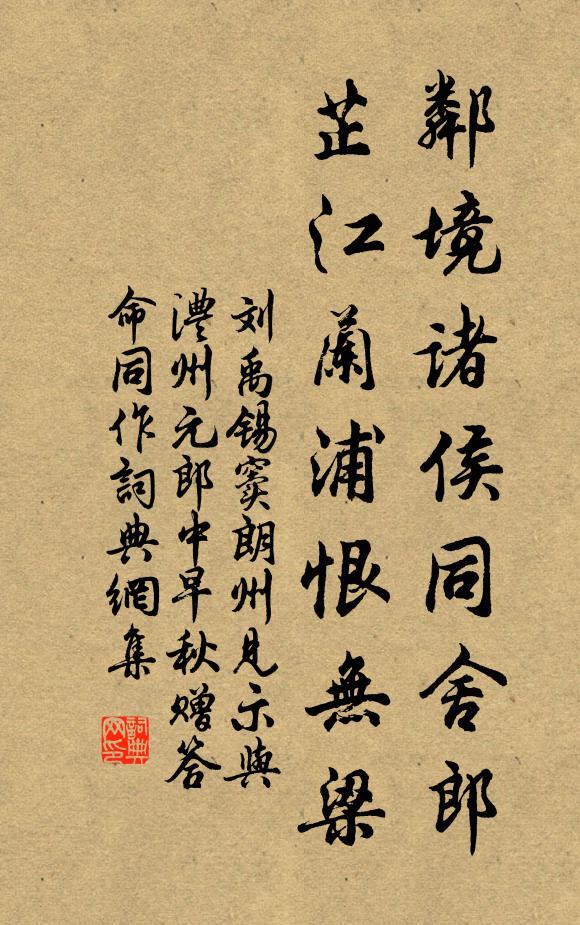 鄰境諸侯同舍郎
芷江蘭浦恨無梁
刘禹锡窦朗州見示與
澧州元郎中早秋赠答
命同作詞典網集
詞典网印